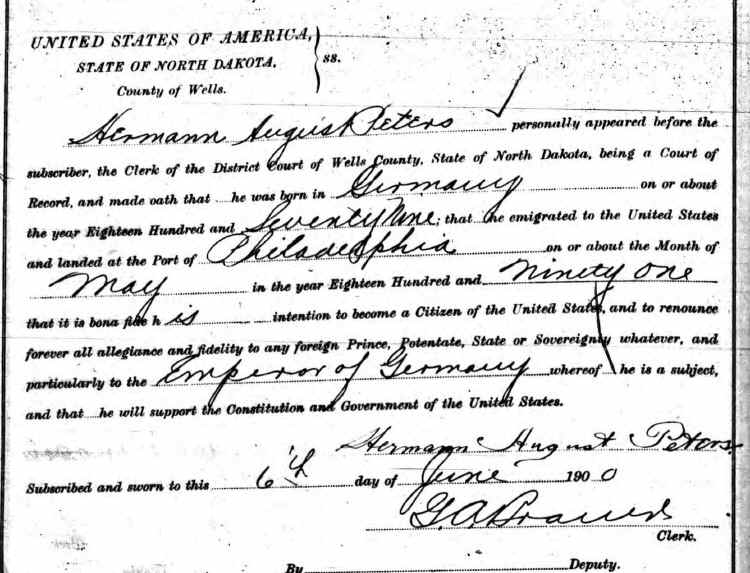 UNITED STATES OF AMERICA,
STATE OF NORTH DAKOTA. ss.
County of Wells.
Hermann August Peters personally appeared before the
subscriber, the Clerk of the District Court of Wells County, State of North Dakota, being a Court of
Record, and made oath that he was born in Germany on or about
the year Eighteen Hundred and Seventy Nine; that he emigrated to the United States
and landed at the Port of Philadelphia on or about the Month of
May in the year Eighteen Hundred and Ninety One
that it is bona fide his intention to become a Citizen of the United States, and to renounce
forever all allegiance and fidelity to any foreign Prince, Potentate, State or Sovereignty whatever, and
particularly to the Emperor of Germany whereof he is a subject,
and that he will support the Constitution and Government of the United States.
Hermann August Peters
Subscribed and sworn to this 6th day of June 1900
G. A.
Clerk.
By Deputy.